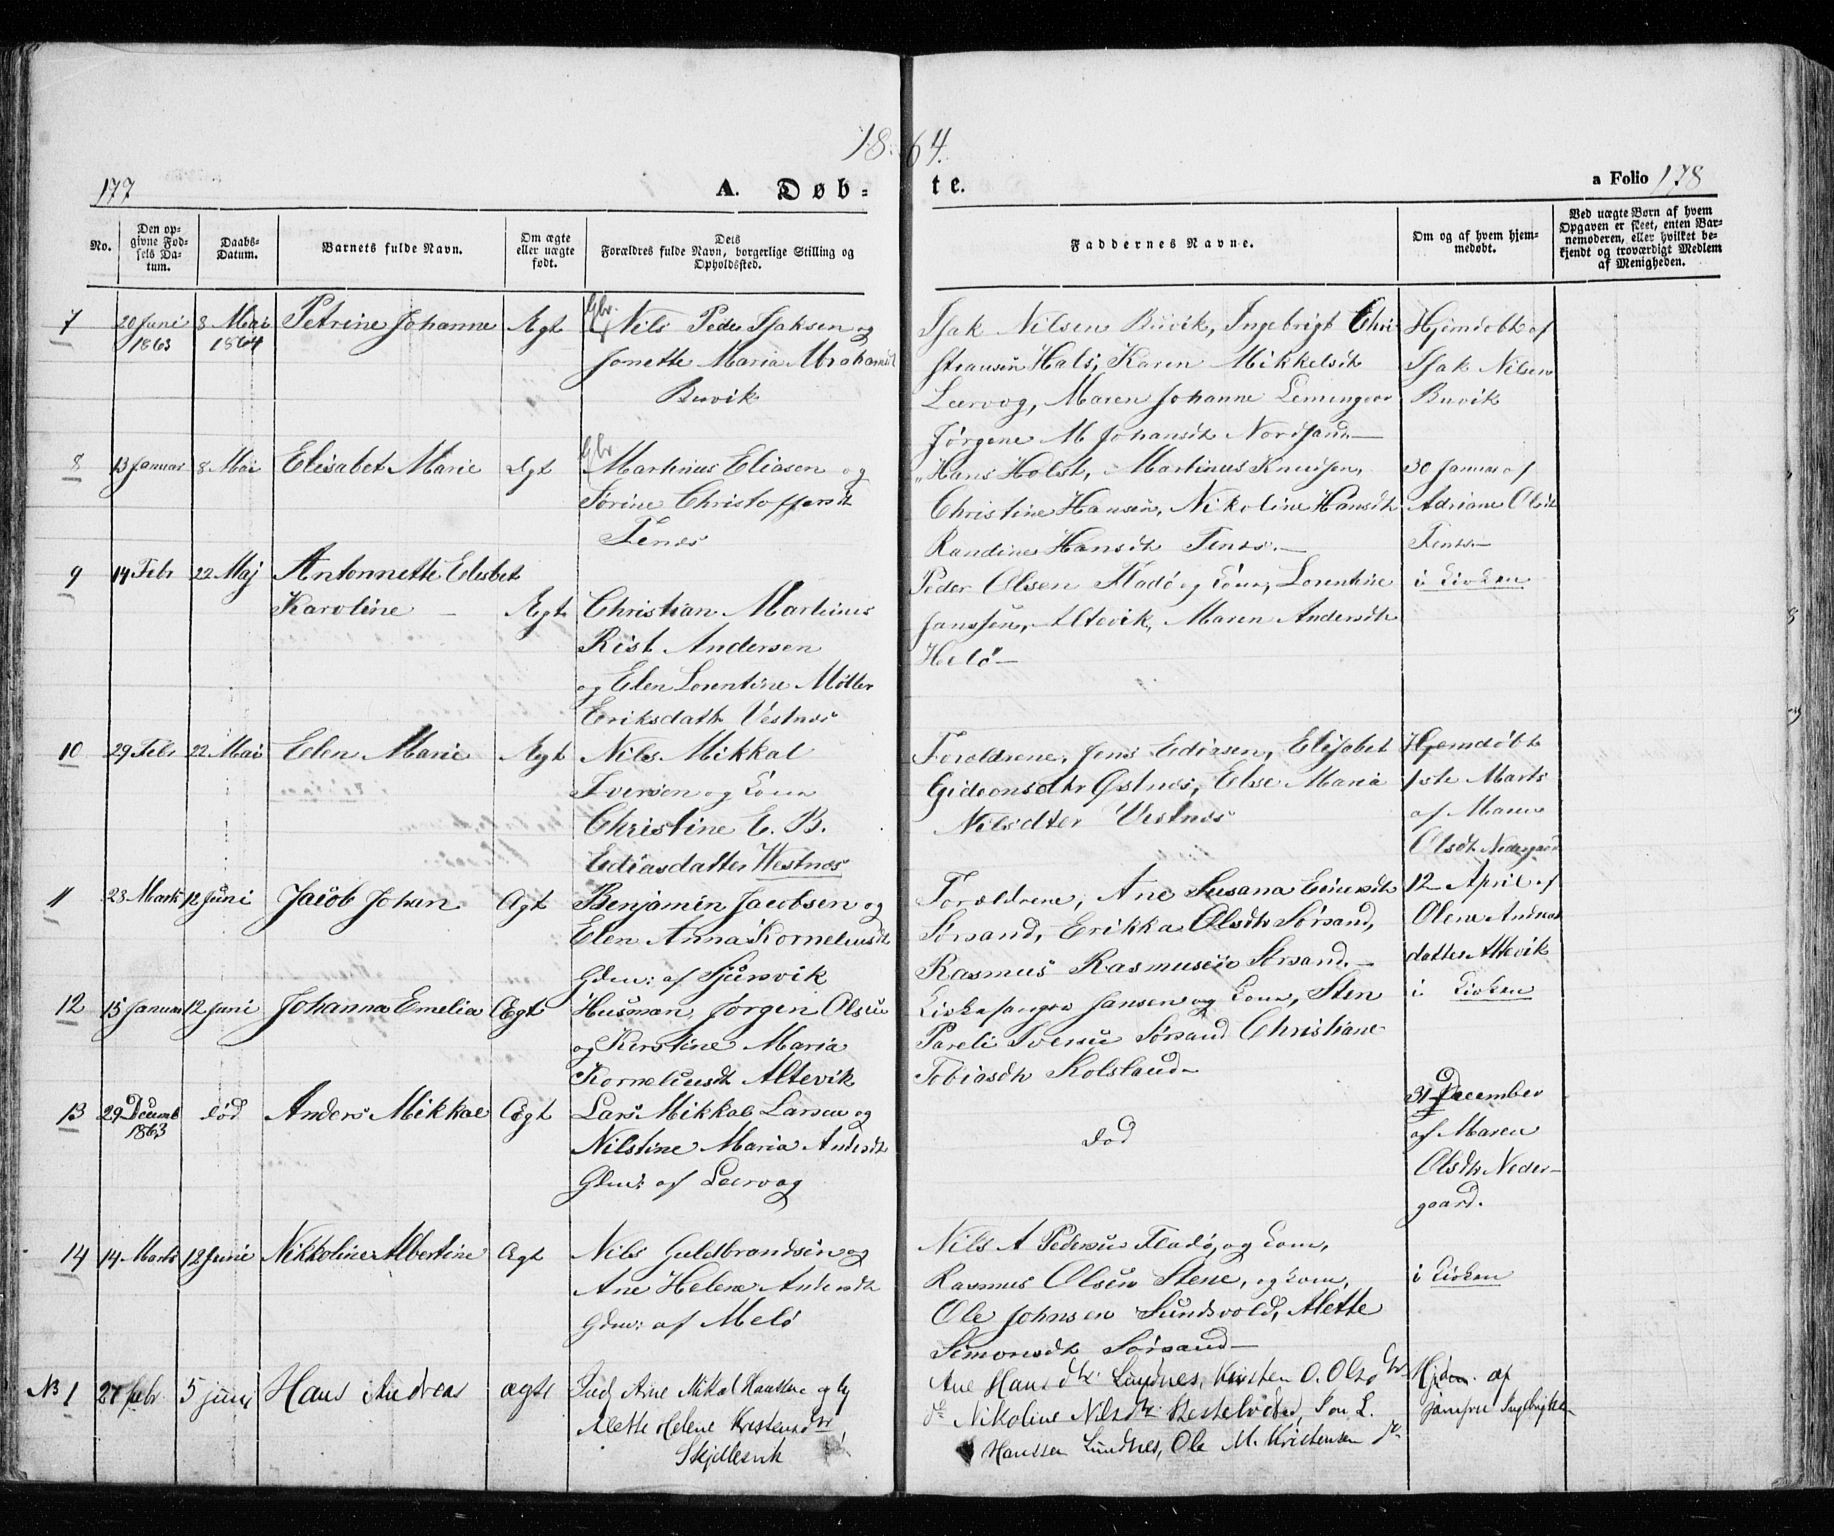 1864.
177 A. Døb-te. a Folio 178
No. Den opgivne Fødsels Datum. Daabs-Datum. Barnets fulde Navn. Om ægte eller uægte født. Dets Forældres fulde Navn, borgerlige Stilling og Opholdssted. Faddernes Navne. Om og af hvem hjemmedøbt. Ved uægte Børn af hvem Opgaven er skeet, enten Barnemoderen, eller hvilket bekjendt og troværdigt Medlem af Menigheden.
7 20 Juni 8 Mai Petrine Johanne Ægt Gbr. Nils Peder Isaksen og
1863 1864 Jonette Maria Abrahamsd
Buvik
Isak Nilsen Buvik, Ingebrigt Chri
stiansen Hals, Karen Mikkelsdt
Leervog, Maren Johanne
Jørgine M Johansdt Nordsand
Hjemdøbt af
Isak Nilsen
Buvik
8 13 Januar 8 Mai Elisabet Marie Ægt Gbr Martinus Eliasen og
Sørine Christoffersdt
Tenes
Hans Holst, Martinus Knudsen,
Christine Hansen, Nikoline Hansdt
Randine Hansdt Tenes
30 Januar af
Adriane Olsdt
Tenes
9 14 Febr 22 Maj Antonnette Elisbet
Karoline Ægt Christian Martinus
Rist Andersen
og Elen Lorentine Møller
Eriksdatter Vestnes
Peder Olsen Fladø og Kone, Lorentine
Janssen, Altevik, Maren Andersdt
i Kirken
10 29 Febr 22 Mai Elen Marie Ægt Nils Mikkal
Iversen og Kone
Christine E. B.
Ediasdatter Westnes
Foreldrene, Jens Ediasen, Elisabet
Gideonsdtr Østnes, Else Maria
Nilsdtter Vestnes
Hjemdøbt
1ste Marts
af Maren
Olsdt Nedergaard
11 23 Marts 12 Juni Jacob Johan Ægt Benjamin Jacobsen og
Elen Anna Korneliusdt
Gdm: af Sjursvik
Foreldrene, Ane Susana
Sørsand, Erikka Olsdtr Sørsand,
Rasmus Rasmusen Sørsand.
12 April af
Olene Andreas
datter Altevik
12 15 Januar 12 Juni Johanna Emelia Ægt Husman Jørgen Olsen
og Kirstine Maria
Korneliusdt Altevik
Kirkesanger Jansen og Kone, Sten
Pareli Iversen Sørsand Christiane
Tobiasdtr Kolsland
i Kirken
13 29 Decemb død Anders Mikkal Ægt Lars Mikkal Larsen og
1863 Nilstine Maria Andersdt
Gdm: af Leervog
død
31 December
af Maren
Olsdtr Neder-
gaard.
14 14 Marts 12 Juni Nikkoline Albertine Ægt Nils Guldbrandsen og
Ane Helena Andersdt
Gdm: af Melø
Nils A Pedersen Fladø, og Kone,
Rasmus Olsen Stene, og kone,
Ole Johnsen Sundsvold, Alette
Simonsdt Sørsand
i Kirken
NB 1 27 febr 5 juni Hans Andreas ægte Arne Mikal Hanssen og
Alette Helene Kristensdtr
Skjellesvik
Ane Hansdtr. Lundnes, Kirsten O. Olsdtr
Nikoline Nilsdtr. Jon L.
Hanssen Lundnes, Ole M. Kristensen
Hjdøm. af
Ingebrigtsen